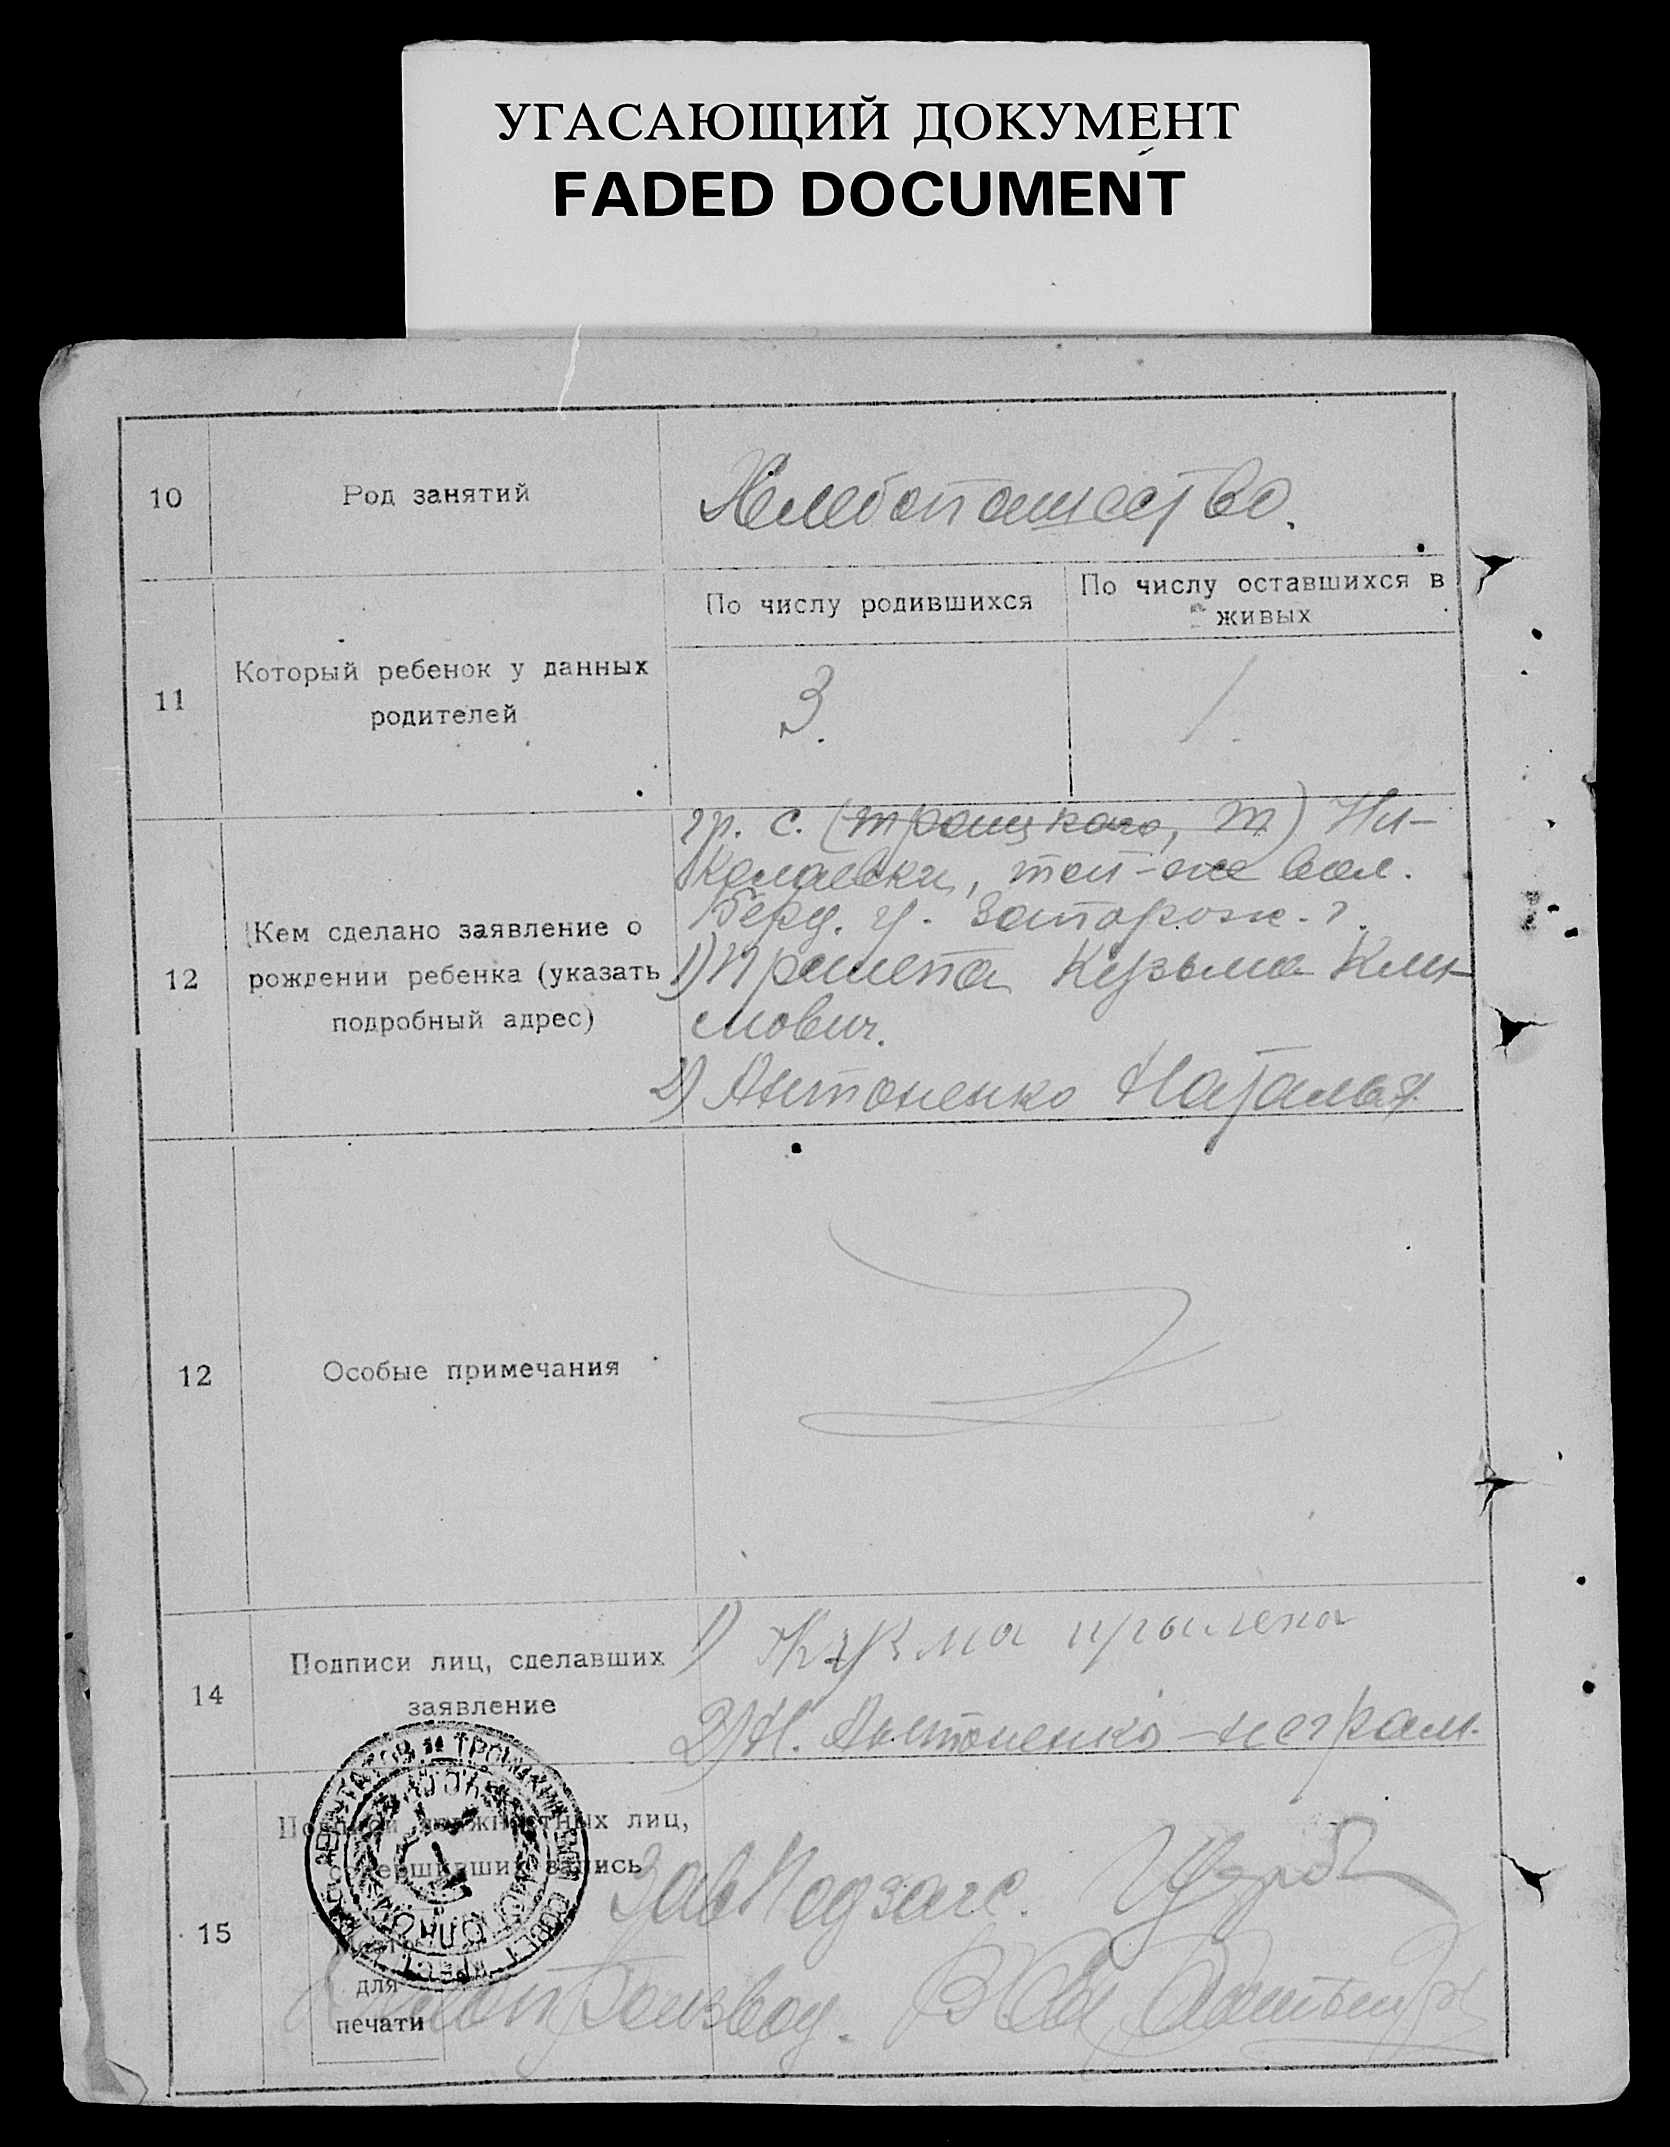 УГАСАЮЩИЙ ДОКУМЕНТ
FADED DOCUMENT
10
Род занятий
Хлебопашество.
11
Который ребенок у данных
родителей
По числу родившихся
По числу оставшихся в
живых
3.
1.
12
Кем сделано заявление о
рождении ребенка (указать
подробный адрес)
гр. с. (троицкого, т) Ни-
колаевки, той-же вол.
Берд. у. Запорож. г.
1) Кузьма Кли-
мович.
2) Антоненко Наталья
12
Особые примечания
14
Подписи лиц, сделавших
заявление
1)
2) Н. Антоненко неграм.
15
Подписи должностных лиц,
совершивших запись
Зав Подзагс.
Место
для
печати